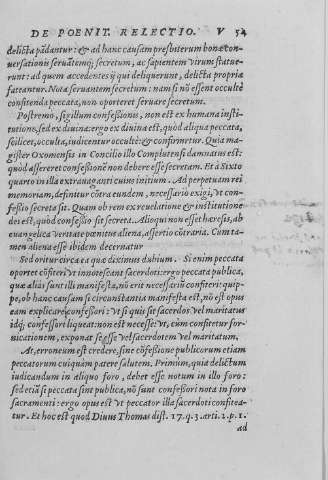 DE POENIT. RELECTIO. V 54
delicta pādantur: & ad hanc causam presbiterum bonæ con-
uersationis seruātemq; secretum, ac sapientem virum statue-
runt: ad quem accedentes ij qui deliquerunt, delicta propria
fateantur. Nota seruantem secretum: nam si nō essent occultè
confitenda peccata, non oporteret seruare secretum.
Postremo, sigillum confessionis, non est ex humana insti-
tutione, sed ex diuina: ergo ex diuina est, quòd aliqua peccata,
scilicet, occulta, iudicentur occultè: & confirmetur. Quia ma-
gister Oxomensis in Concilio illo Complutensi damnatus est:
quòd assereret confessionē non debere esse secretam. Et à Sixto
quarto in illa extrauaganti cuius initium. Ad perpetuam rei
memoriam, definitur cōtra eundem, necessario exigi, vt con-
fessio secreta sit. Quam ob rem ex reuelatione & institutione
dei est, quòd confessio sit secreta. Alioqui non esset hæresis, ab
euangelica veritate pœnitus aliena, assertio cōtraria. Cum ta-
men aliena esse ibidem decernatur
Sed oritur circa ea quæ diximus dubium. Si enim peccata
oportet cōfiteri vt innotescant sacerdoti: ergo peccata publica,
quæ alias sunt illi manifesta, nō erit necessariū confiteri: quip-
pe, ob hanc causam si circunstantia manifesta est, nō est opus
eam explicare confessori: vt si quis sit sacerdos vel maritatus
idq; confessori liqueat: non est necesse: vt, cùm confitetur for-
nicationem, exponat se esse vel sacerdotem vel maritatum.
At, erroneum est credere, sine cōfessione publicorum etiam
peccatorum cuiquam patere salutem. Primùm, quia delictum
iudicandum in aliquo foro, debet esse notum in illo foro:
sed etiā si peccata sint publica, nō sunt confessori nota in foro
sacramenti: ergo opus est vt peccator illa sacerdoti confitea-
tur. Et hoc est quod Diuus Thomas dist. 17. q. 3. arti. 2. p. 1.
ad